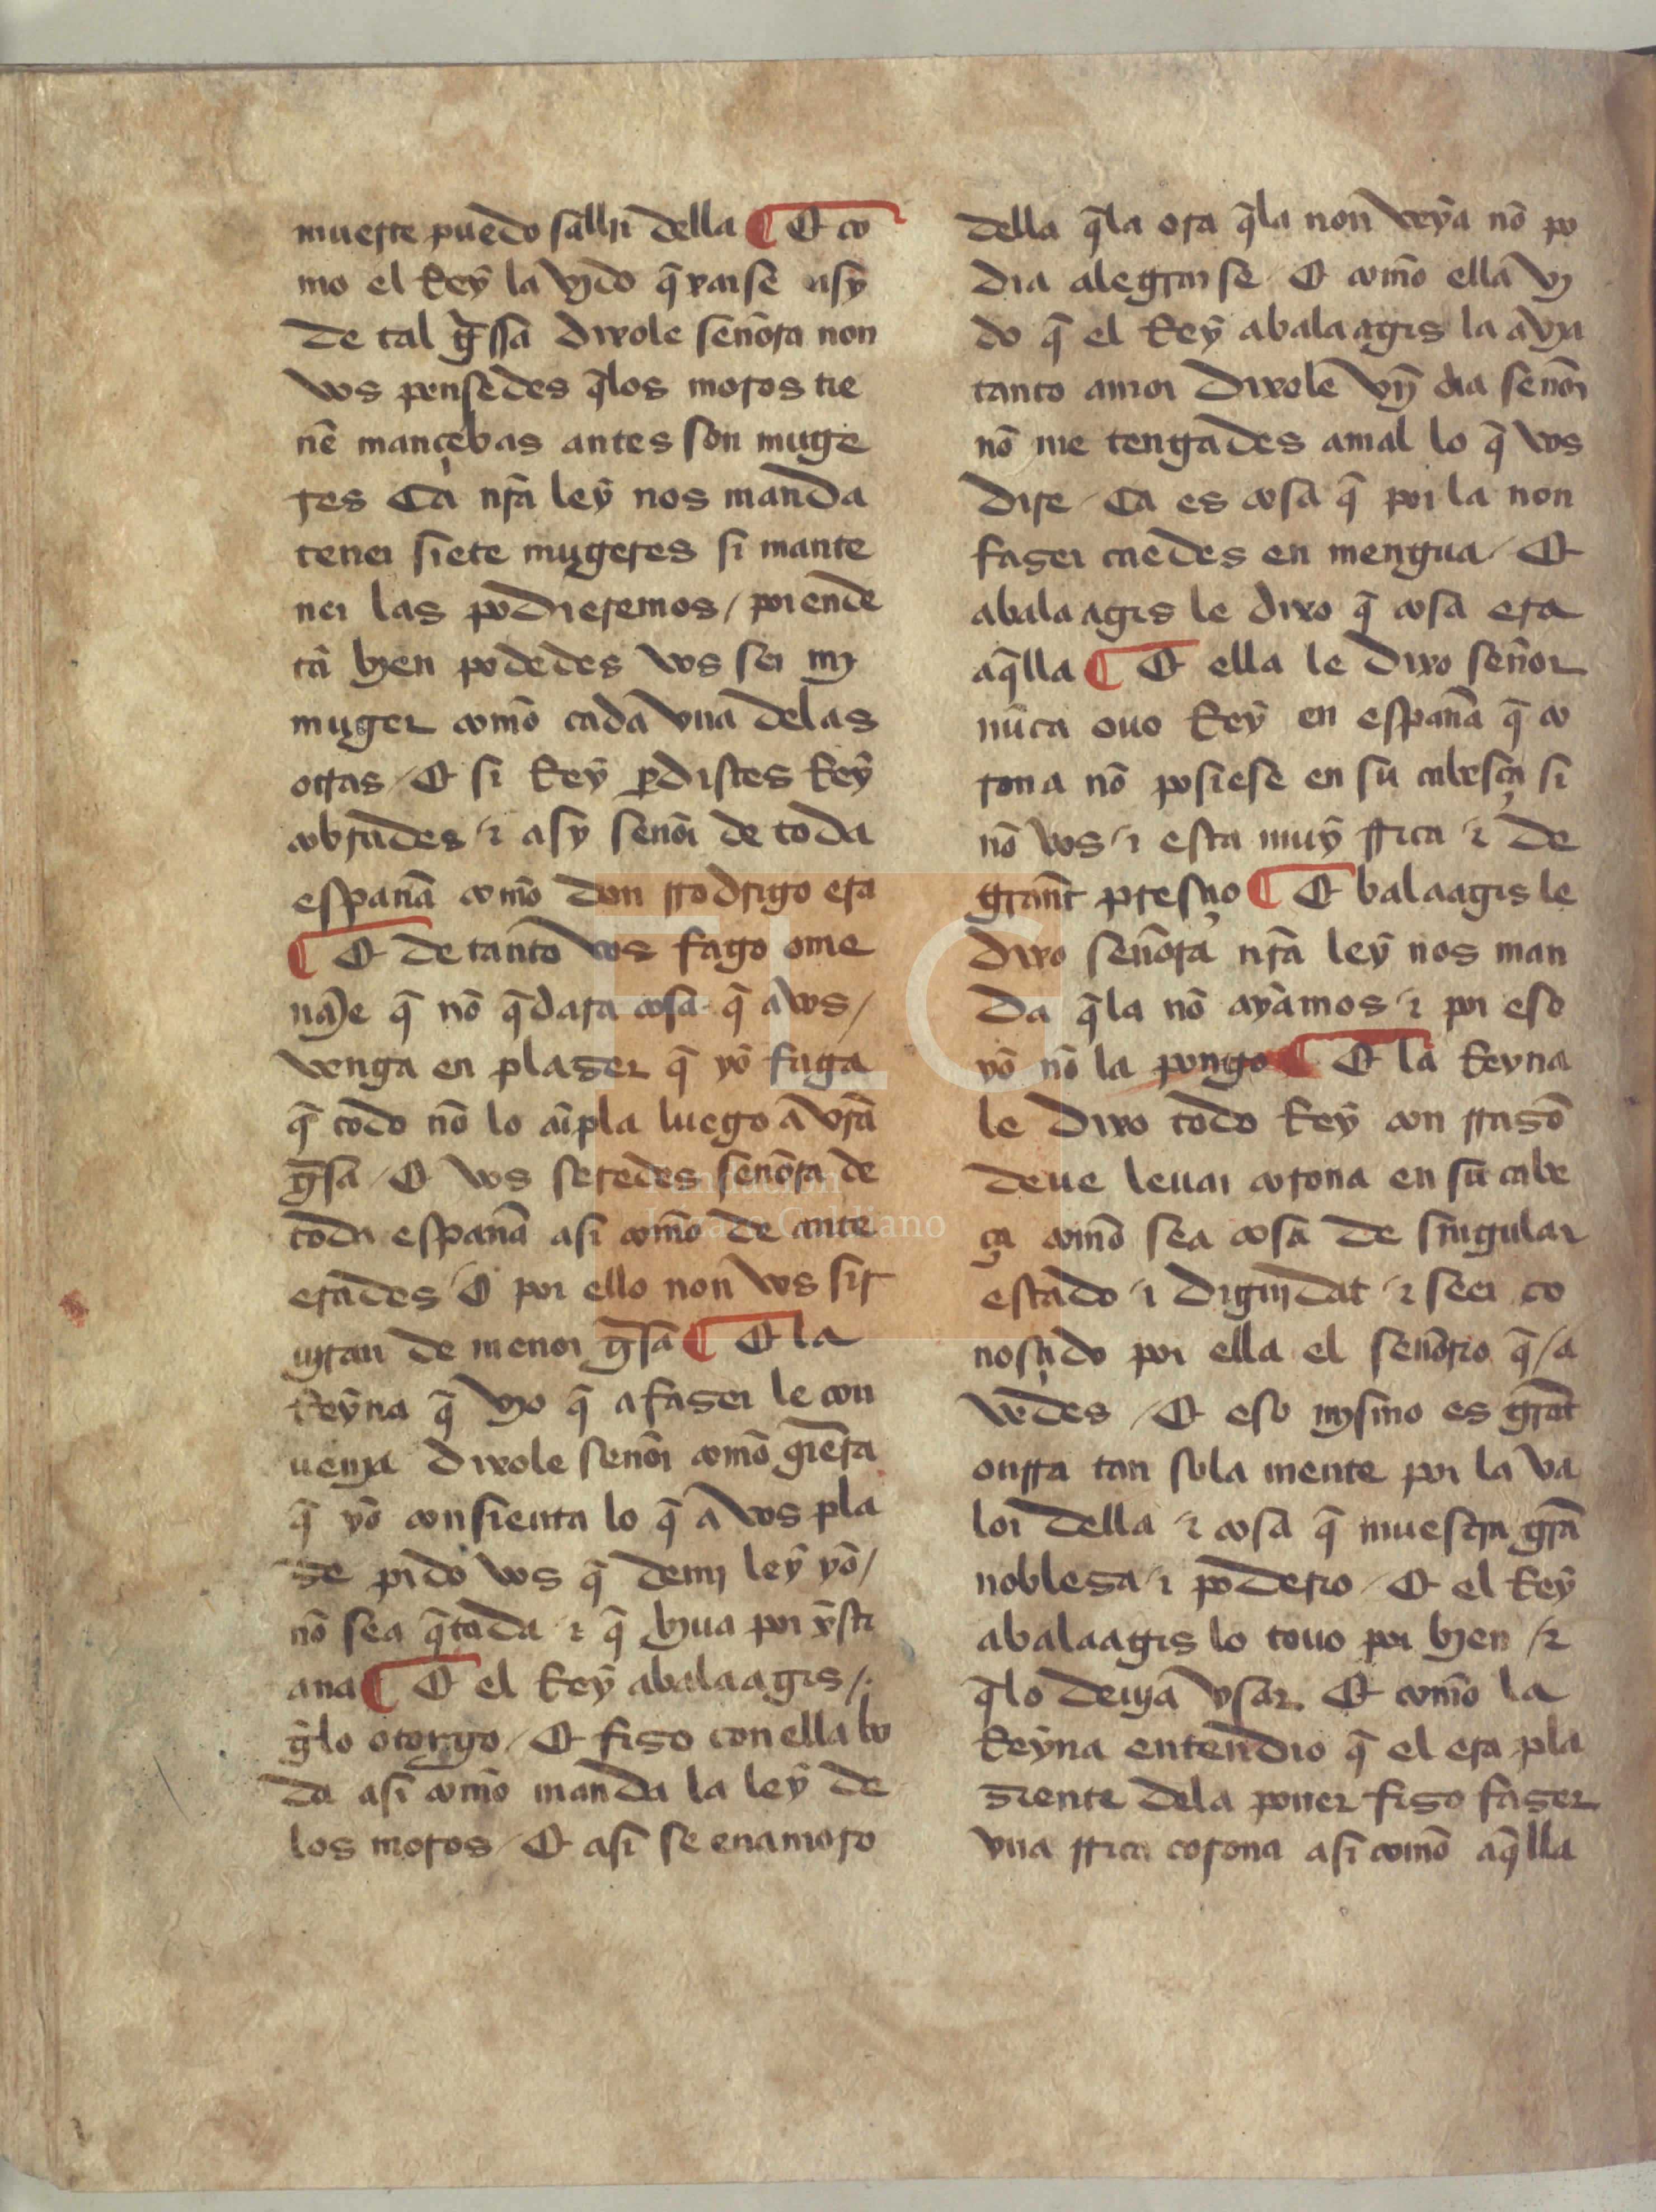 muerte puedo sallir della ¶ Et co
mo el Rey la vido q̃ xarse asy
de tal gĩssa dixole señora non
vos pensedes q̃los moros tie
nẽ mançebas antes son muge
res Ca nr̃a ley nos manda
tener siete mugeres si mante
ner las podieremos / por ende
tã bien podedes vos ser mi
muger com̃o cada vna delas
otras / Et si Rey ꝑdistes Rey
cobrades / ⁊ asy señor de toda
españa com̃o don rrodrigo era
¶ Et de tanto vos fago ome
naje q̃ nõ q̃dara cosa q̃ a vos /
venga en plaser q̃ yo faga
q̃ todo nõ lo cũpla luego a vr̃a
gĩsa / Et vos seredes señora de
toda españa asi com̃o de ante
erades / Et por ello non vos sir
uiran de menor gĩsa ¶ Et la
Reyna q̃ vio q̃ a faser le con
uenia dixole señor com̃o q̃era
q̃ yo consienta lo q̃ a vos pla
se pido vos q̃ demi ley yo /
nõ sea q̃tada / ⁊ q̃ biua por xp̃sti
ana ¶ Et el Rey abalaagis /.
ge lo otorgo / Et fiso con ella bo
da asi com̃o manda la ley de
los moros / Et asi se enamoro
della q̃la ora q̃la non veya nõ po
dia alegrarse / Et com̃o ella vi
do q̃ el Rey abalaagis la auia
tanto amor dixole vn dia señor
nõ me tengades amal lo q̃ vos
dire / Ca es cosa q̃ por la non
faser caedes en mengua / Et
abalaagis le dixo q̃ cosa era
aq̃lla ¶ Et ella le dixo señor
nũca ouo Rey en españa q̃ co
rona nõ posiese en su cabesça si
nõ vos / ⁊ esta muy rrica / ⁊ de
grant presçio ¶ Et balaagis le
dixo señora nr̃a ley nos man
da q̃la nõ ayamos / ⁊ por eso
yo nõ la pongo ¶ Et la Reyna
le dixo todo Rey con rrasõ
deue leuar corona en su cabe
ça com̃o sea cosa de singular
estado / ⁊ dignidat / ⁊ seer co
nosçido por ella el señorio q̃ / a
vedes / Et eso mismo es grãt
onrra tan sola mente por la va
lor della / ⁊ cosa q̃ muestra grã
noblesa / ⁊ poderio / Et el Rey
abalaagis lo touo por bien / ⁊
q̃lo deuia vsar. Et com̃o la
Reyna entendio q̃ el era pla
siente dela poner fiso faser
vna rrica corona asi com̃o aq̃lla
FLG
Fundación
Lázaro Galdiano